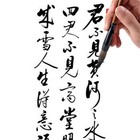 君不見黃河之水
回君不見高堂明
成雪人生得意